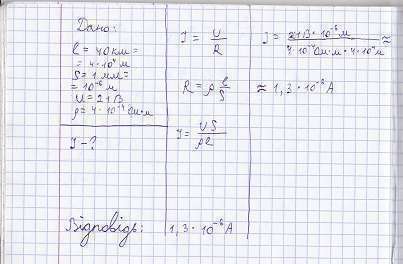 Дано:
ℓ = 40 км =
= 4·10⁴ м
S = 1 мм² =
= 10⁻⁶ м
U = 21 В
ρ = 4·10⁻⁷ Ом·м
I - ?
I = U/R
R = ρ ℓ/S
I = US/ρℓ
I = 21 В · 10⁻⁶ м / 4·10⁻⁷ Ом·м · 4·10⁴ м ≈
≈ 1,3 · 10⁻³ А
Відповідь: 1,3 · 10⁻⁶ А